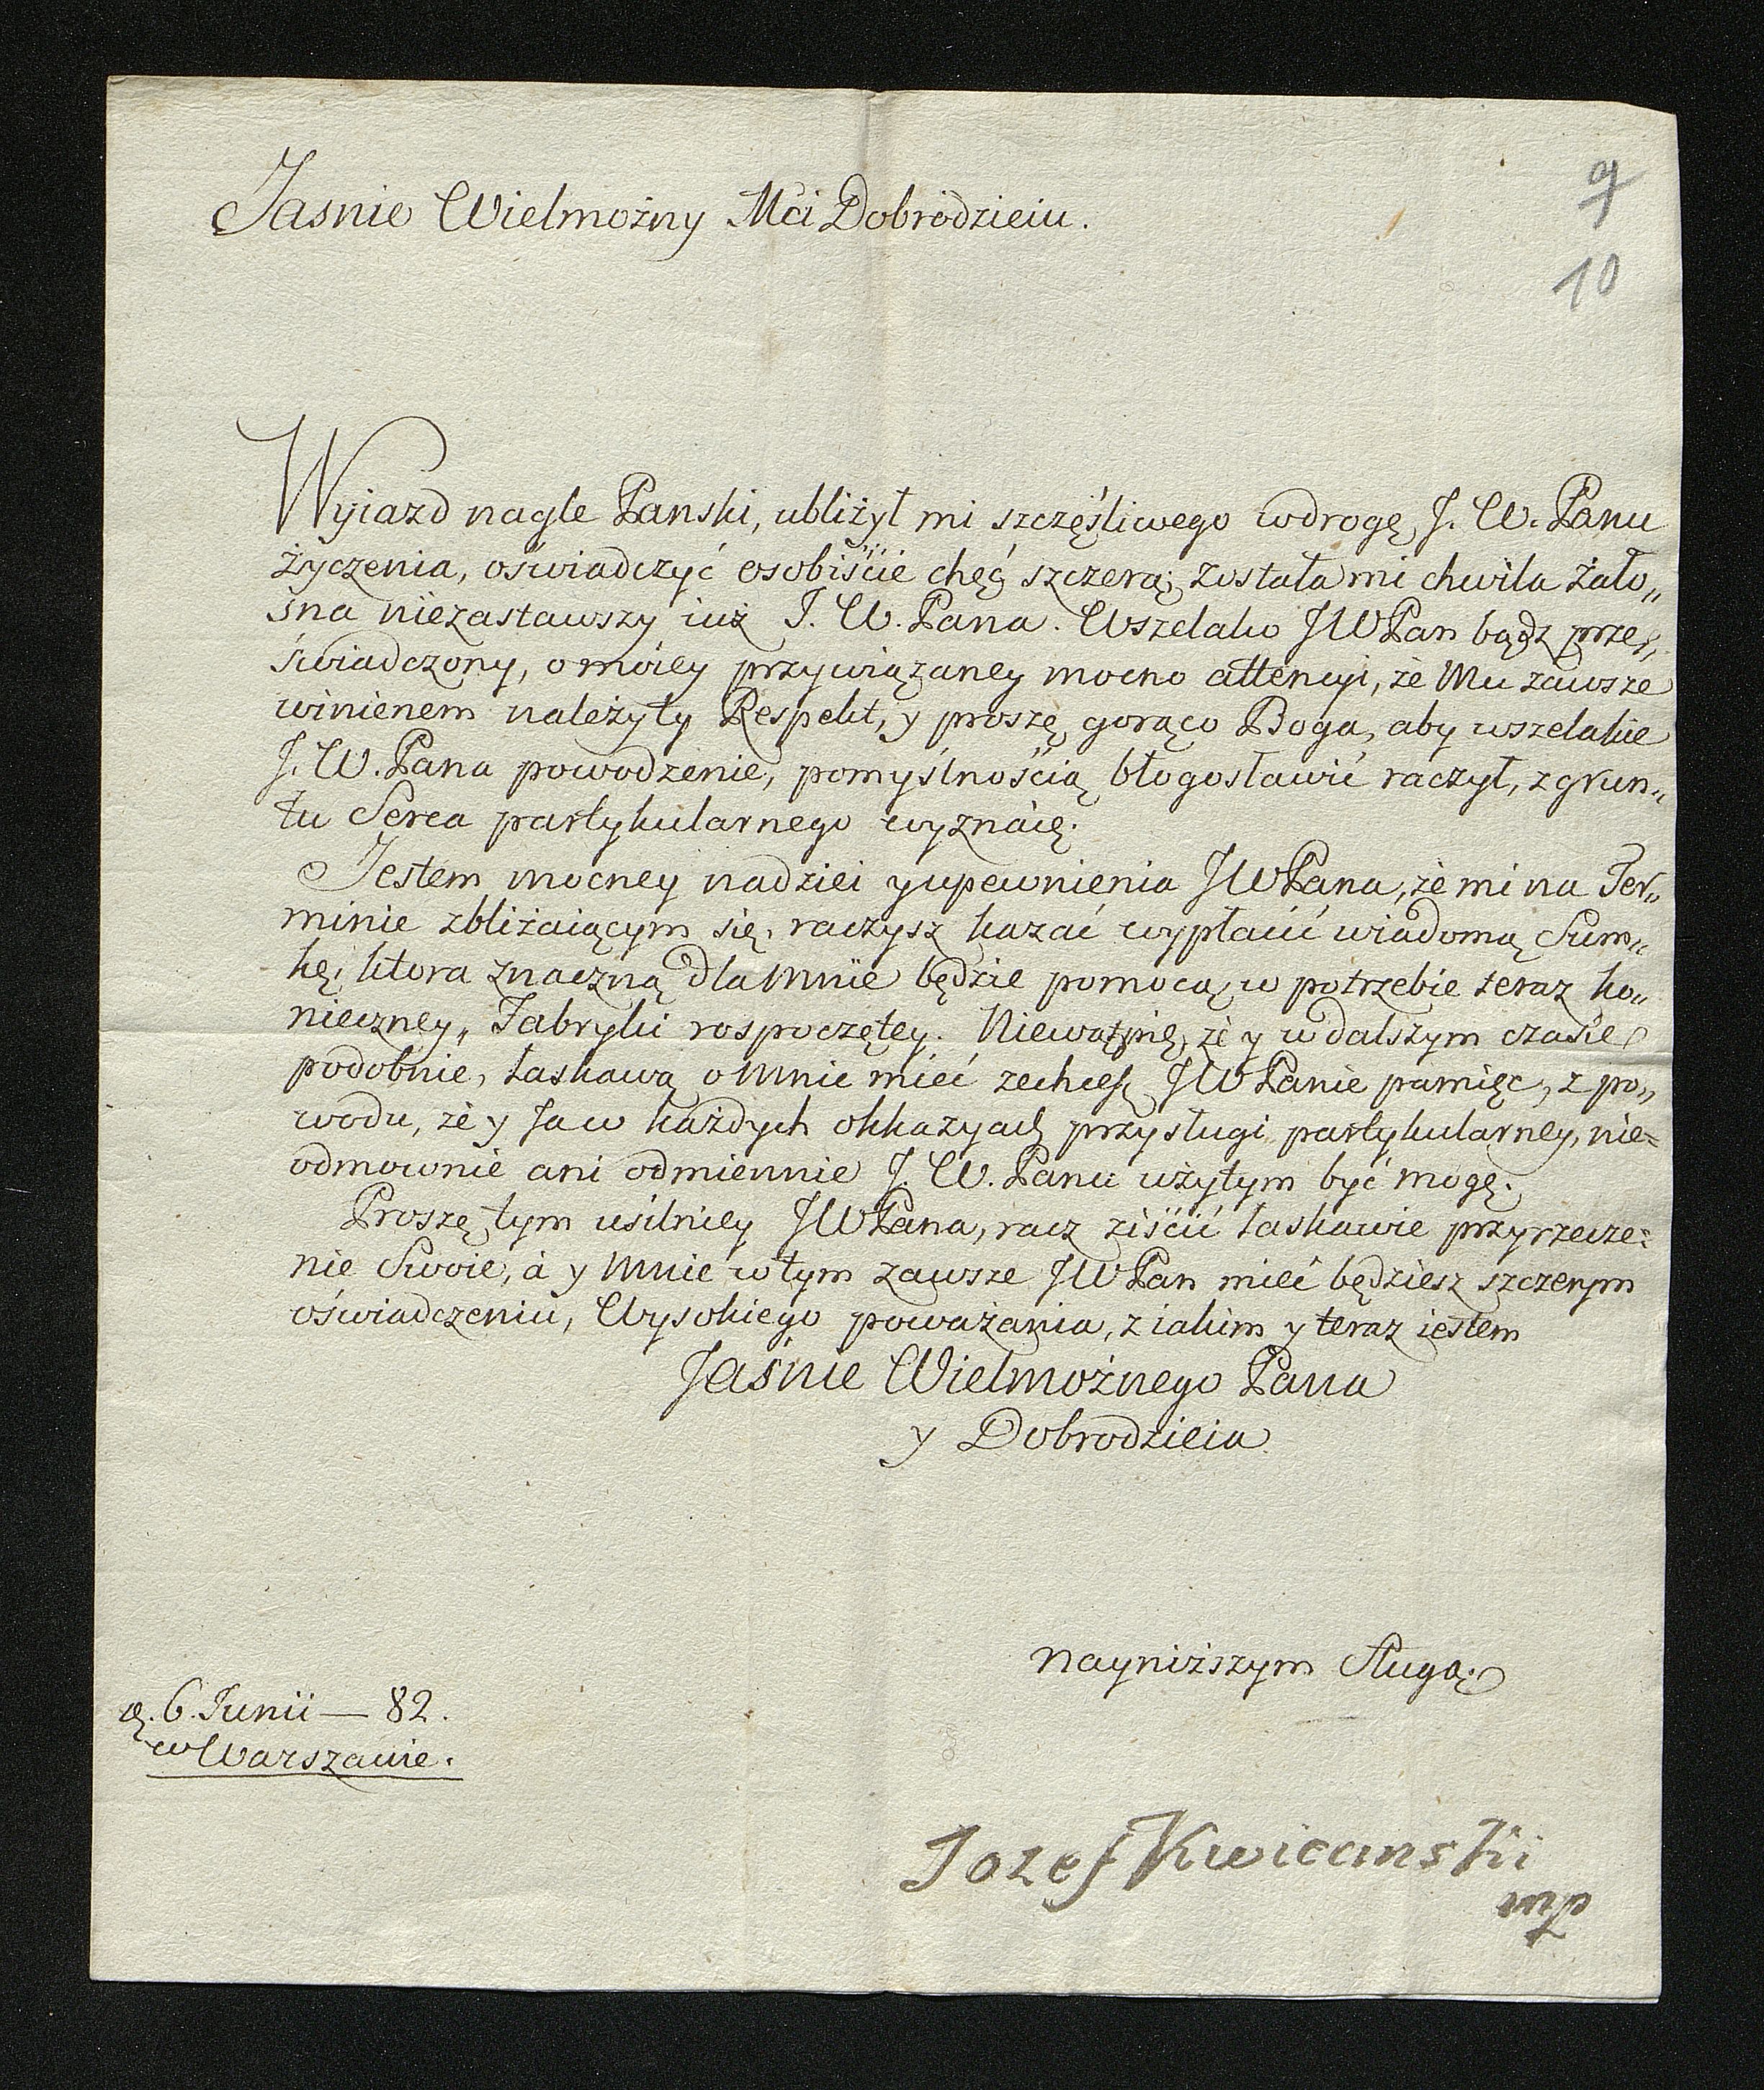 9
10
Jasnie Wielmożny Mći Dobrodzieiu.
Wyiazd nagle Panski, ubliżył mi szczęśliwego wdrogę J. W. Panu
życzenia, oświadczyć osobiście chęć szczerą; została mi chwila żało„
śna niezastawszy iuż J. W. Pana. Wszelako JWPan bądz prze„
świadczony, o moiey przywiązaney mocno attencyi, że Mu zawsze
winienem należyty Respekt, y proszę gorąco Boga, aby wszelakie
J. W. Pana powodzenie, pomyślnością błogosławić raczył, z grun„
tu Serca partykularnego wyznaię.
Jestem mocney nadziei y upewnienia JWPana, że mi na Ter„
minie zbliżaiącym się, raczysz kazać wypłacić wiadomą Sum„
kę, ktora znaczną dla mnie będzie pomocą, w potrzebie teraz ko„
nieczney, Fabryki rospoczętey. Niewątpię, że y w dalszym czasie
podobnie, łaskawą o mnie mieć zechcesz JWPanie pamięc, z po„
wodu, że y Ja w każdych okkazyach przysługi partykularney, nie=
odmownie ani odmiennie J. W. Panu użytym być mogę.
Proszę tym usilniey JWPana, racz ziścić łaskawie przyrzecze=
nie Swoie, à y mnie w tym zawsze JWPan mieć będziesz szczerym
oświadczeniu, Wysokiego poważania, z iakim y teraz iestem
Jaśnie Wielmożnego Pana
y Dobrodzieia
nayniższym Sługą.
d. 6. Junii — 82.
w Warszawie.
Jozef Kwiecinski
mp